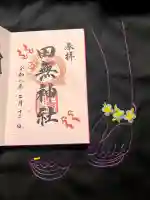 奉拝
田無神社
令和 年二月十 日